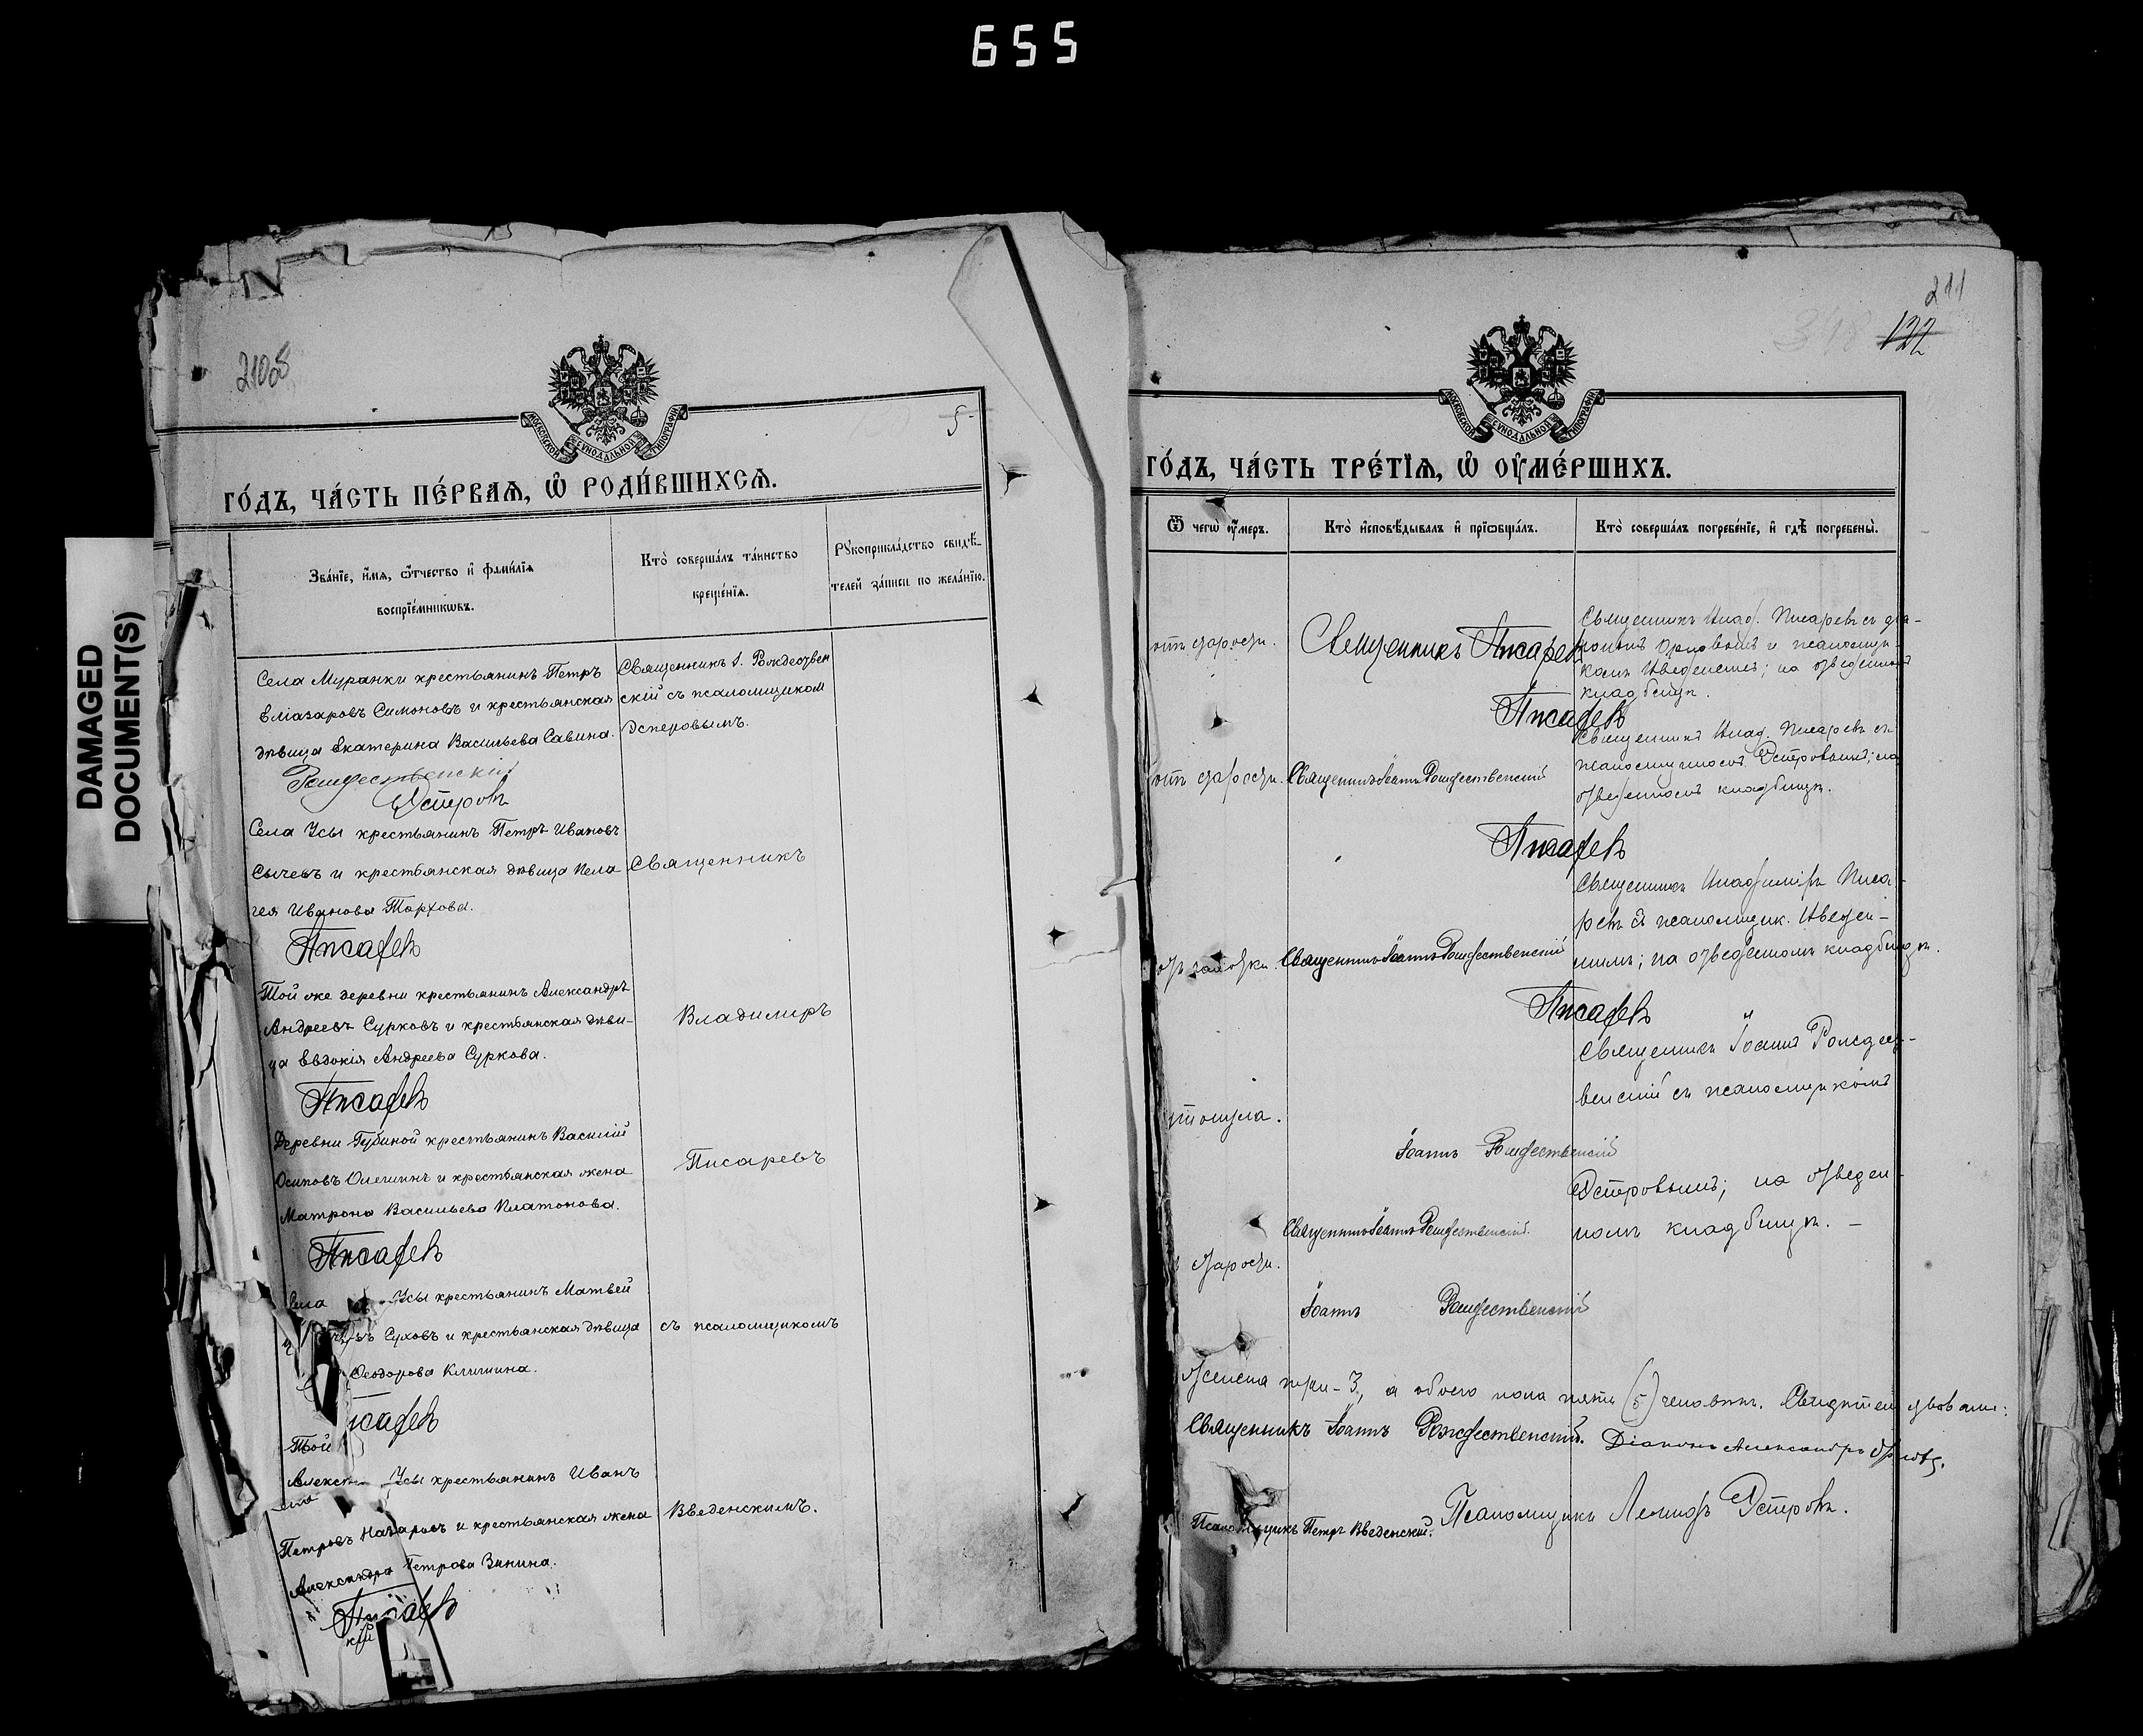 655
DAMAGED
DOCUMENT(S)
5
МОСКОВСКОЙ СѴНОДАЛЬНОЙ ТИПОГРАФІИ
ГО́ДЪ, ЧА́СТЬ ПЕ́РВАѦ, Ѽ РОДИ́ВШИХСѦ.
Зва́нїе, и҆́мѧ, ѻ҆́тчество и҆ фами́лїѧ
воспрїе́мникѡвъ.
Кто̀ соверша́лъ та́инство
креще́нїѧ.
Рꙋкоприкла́дство свидѣ́-
телей за́писи по жела́нїю.
Села Муранки крестьянинъ Петръ
Еліазаровъ Симоновъ и крестьянская
дѣвица Екатерина Васильева Савина.
Священникъ І. Рождествен
скій съ псаломщиком
Остеровымъ.
Рождественскій
Остеровъ
Села Усы крестьянинъ Петръ Ивановъ
Сычевъ и крестьянская дѣвица Пела
гея Иванова Тархова.
Священникъ
Писаревъ
Той же деревни крестьянинъ Александръ
Андреевъ Сурковъ и крестьянская дѣви-
ца Евдокія Андреева Суркова.
Владимиръ
Писаревъ
Деревни Губиной крестьянинъ Василій
Осиповъ Олешинъ и крестьянская жена
Матрона Васильева Платонова.
Писаревъ
Писаревъ
Села Усы крестьянинъ Матвей
Суховъ и крестьянская дѣвица
Ѳеодорова Климина.
съ псаломщикомъ
Той
Усы крестьянинъ Иванъ
Петровъ Назаровъ и крестьянская жена
Александра Петрова Зинина.
Введенскимъ.
Писаревъ
211
122
МОСКОВСКОЙ СѴНОДАЛЬНОЙ ТИПОГРАФІИ
ГО́ДЪ, ЧА́СТЬ ТРЕ́ТЇѦ, Ѽ ОУ҆МЕ́РШИХЪ.
Ѿ чегѡ̀ ᲂу҆́меръ.
Кто̀ и҆сповѣ́дывалъ и҆ прїѡбща́лъ.
Кто̀ соверша́лъ погребе́нїе, и҆ гдѣ̀ погребены̀.
отъ старости.
Священникъ Писаревъ
Священникъ Влад. Писаревъ съ діа-
кономъ Орловымъ и псаломщи-
комъ Введенским; на отведенномъ
кладбищѣ.
Писаревъ
отъ старости.
Священникъ Іоаннъ Рождественскій
Священникъ Влад. Писаревъ съ
псаломщикомъ Остеровымъ; на
отведенномъ кладбищѣ.
Писаревъ
Священникъ Іоаннъ Рождественскій
Священникъ Владиміръ Писа-
ревъ съ псаломщик. Введен-
скимъ; на отведенномъ кладбищѣ.
Писаревъ
утонула.
Священникъ Іоаннъ Рождест-
венскій съ псаломщикомъ
Іоаннъ Рождественскій
Остеровымъ; на отведен-
номъ кладбищѣ. –
Священникъ Іоаннъ Рождественскій.
старости.
Іоаннъ Рождественскій
женска три-3, а обоего пола пять (5) человѣкъ. Свидѣтельствовали:
Священникъ Іоаннъ Рождественскій. Діаконъ Александръ Орловъ.
Псаломщикъ Петръ Введенскій. Псаломщикъ Леонидъ Остеровъ.